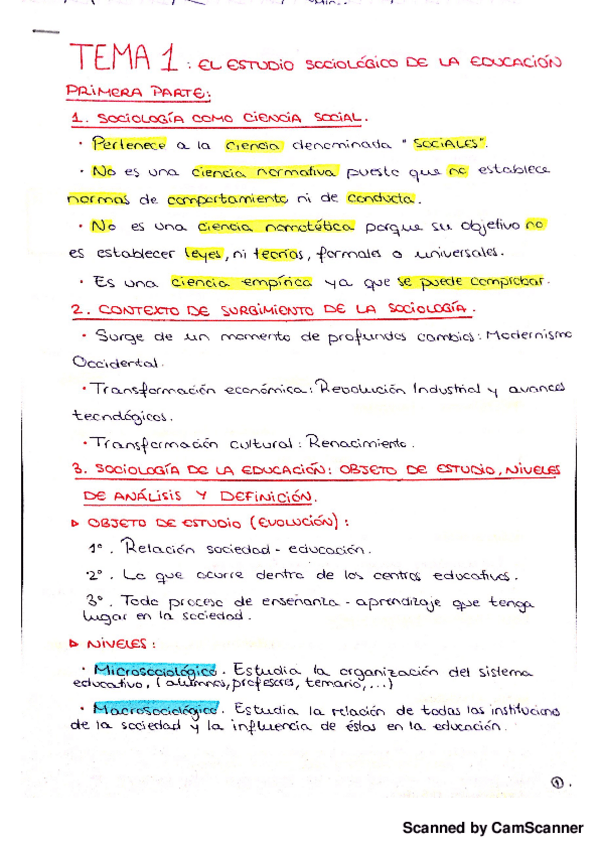 TEMA 1: EL ESTUDIO SOCIOLÓGICO DE LA EDUCACIÓN
PRIMERA PARTE:
1. SOCIOLOGÍA COMO CIENCIA SOCIAL.
· Pertenece a la ciencia denominada "SOCIALES".
· No es una ciencia normativa puesto que no establece
normas de comportamiento ni de conducta.
· No es una ciencia nomotética porque su objetivo no
es establecer leyes, ni teorías, formales o universales.
· Es una ciencia empírica ya que se puede comprobar.
2. CONTEXTO DE SURGIMIENTO DE LA SOCIOLOGÍA.
· Surge de un momento de profundos cambios: Modernismo
Occidental.
· Transformación económica: Revolución Industrial y avances
tecnológicos.
· Transformación cultural: Renacimiento.
3. SOCIOLOGÍA DE LA EDUCACIÓN: OBJETO DE ESTUDIO, NIVELES
DE ANÁLISIS Y DEFINICIÓN.
▷ OBJETO DE ESTUDIO (EVOLUCIÓN):
1º. Relación sociedad - educación.
2º. Lo que ocurre dentro de los centros educativos.
3º. Todo proceso de enseñanza - aprendizaje que tenga
lugar en la sociedad.
▷ NIVELES:
· Microsociológico. Estudia la organización del sistema
educativo, (alumnos, profesores, temario, ...)
· Macrosociológico. Estudia la relación de todas las instituciones
de la sociedad y la influencia de éstas en la educación.
1.
Scanned by CamScanner